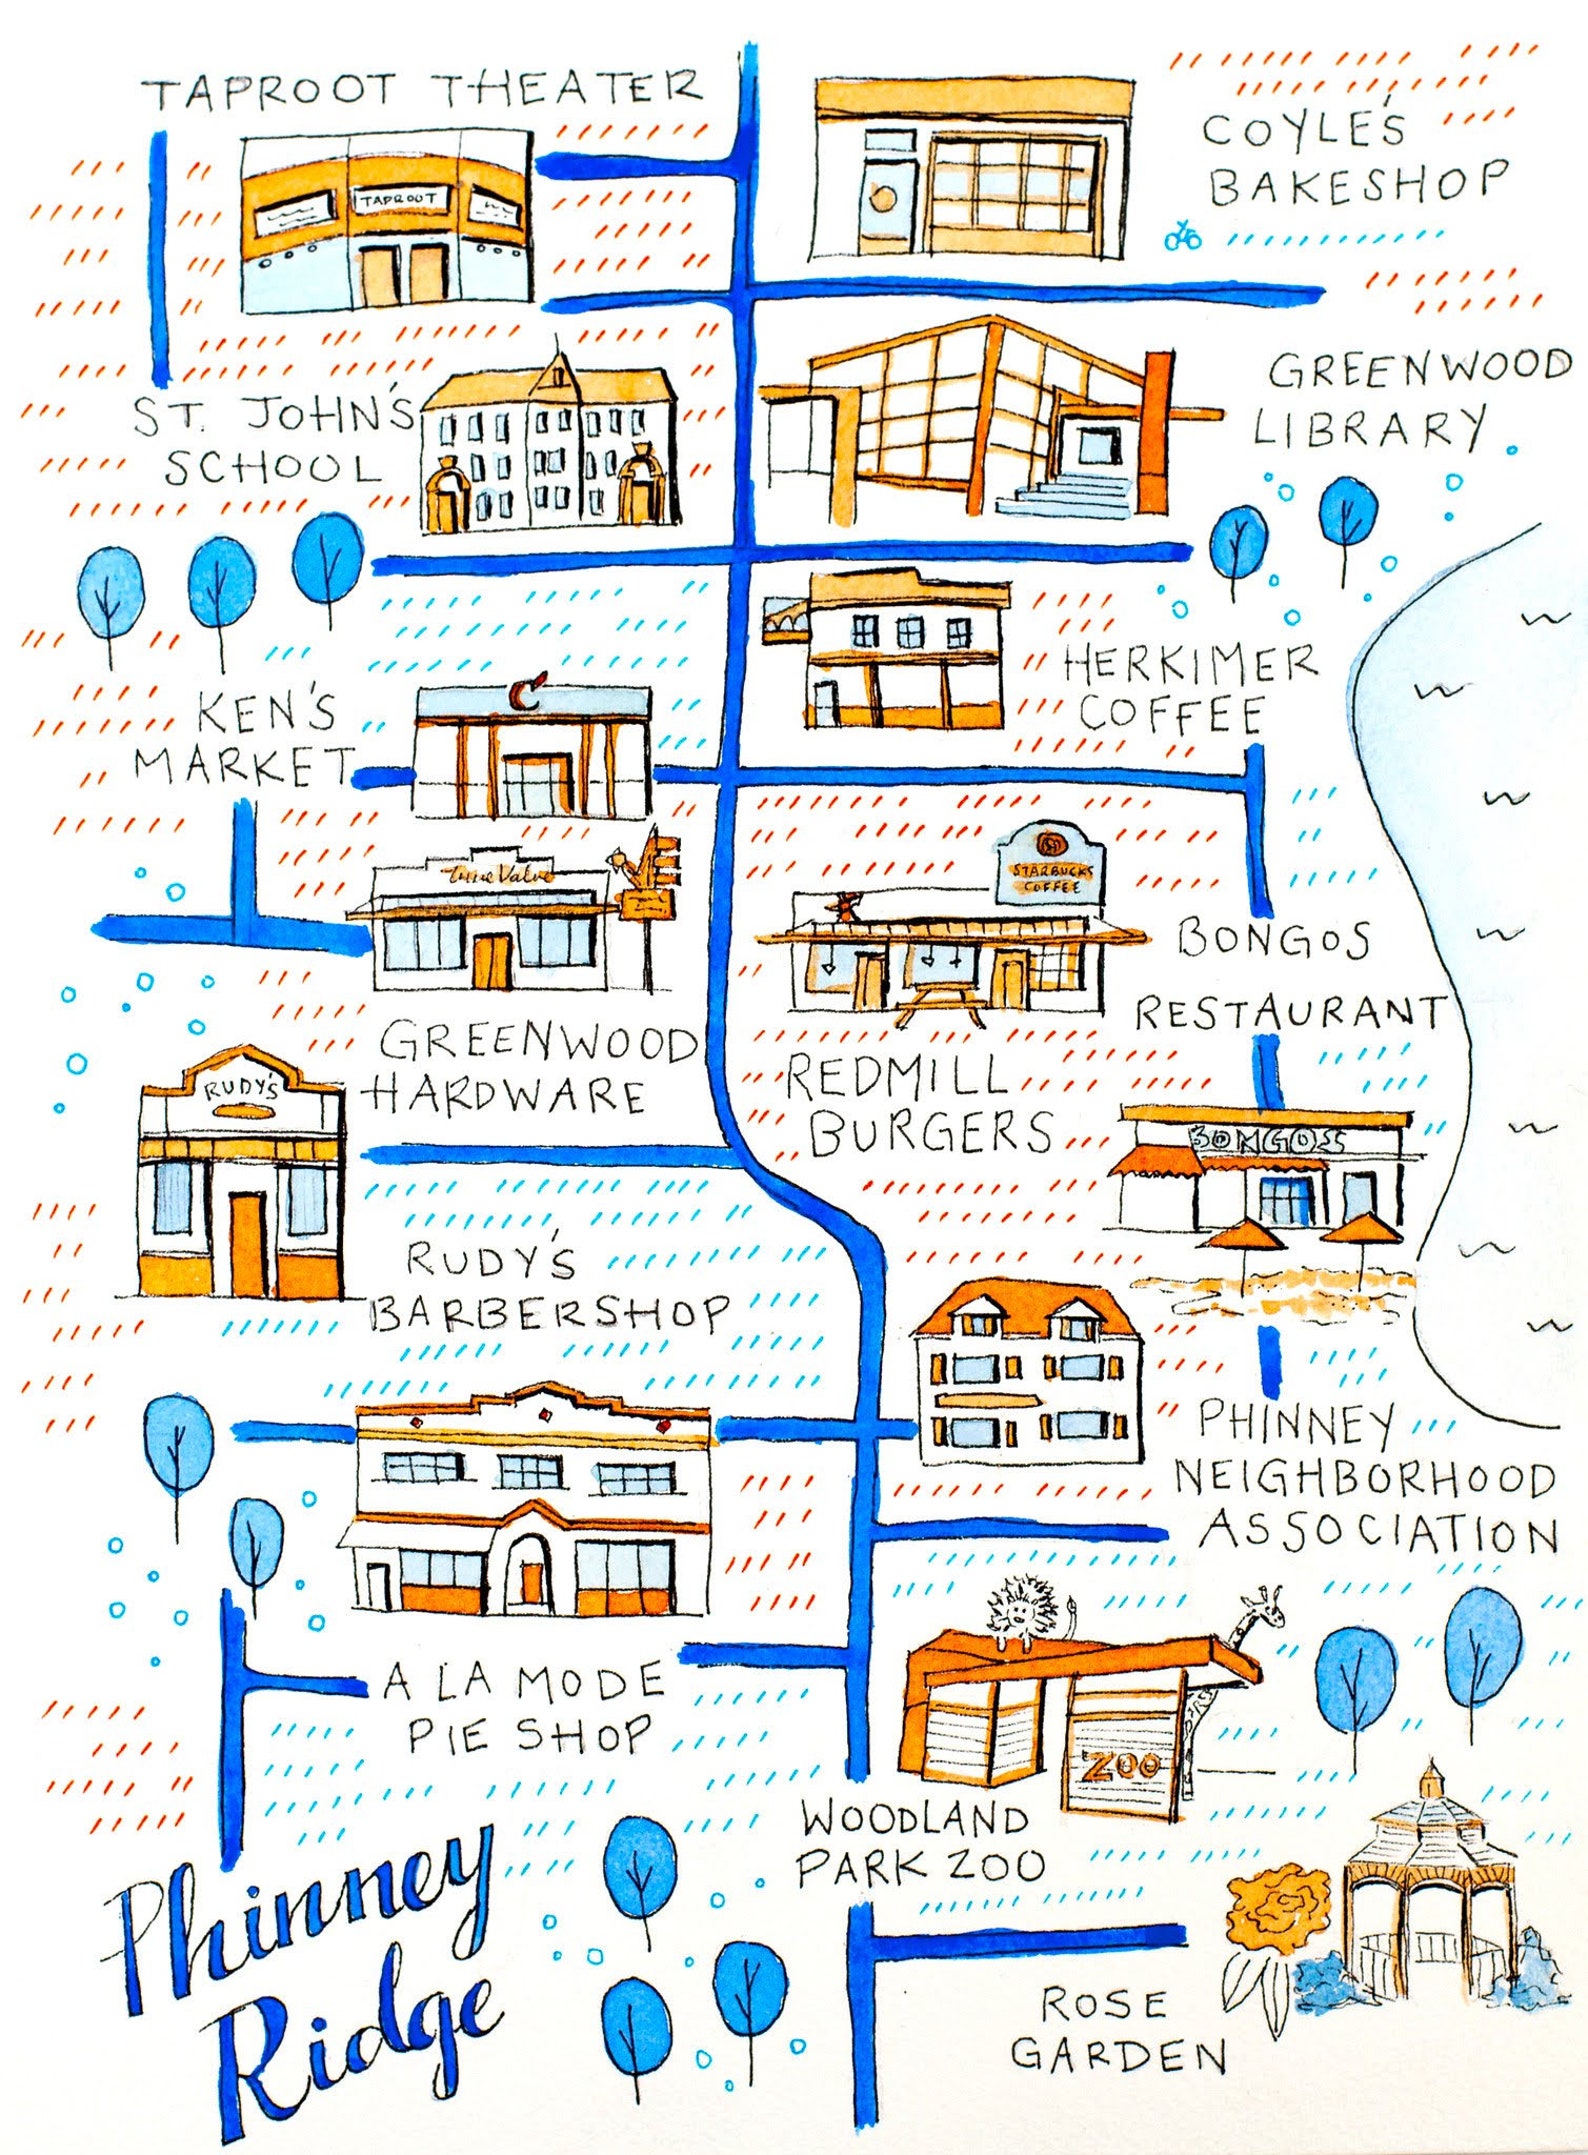 TAPROOT THEATER
TAPROOT
COYLE'S
BAKESHOP
ST. JOHN'S
SCHOOL
GREENWOOD
LIBRARY
KEN'S
MARKET
HERKIMER
COFFEE
True Value
STARBUCKS
COFFEE
GREENWOOD
HARDWARE
BONGOS
RESTAURANT
REDMILL
BURGERS
RUDY'S
BONGOS
RUDY'S
BARBERSHOP
PHINNEY
NEIGHBORHOOD
ASSOCIATION
A LA MODE
PIE SHOP
ZOO
WOODLAND
PARK ZOO
ROSE
GARDEN
Phinney
Ridge